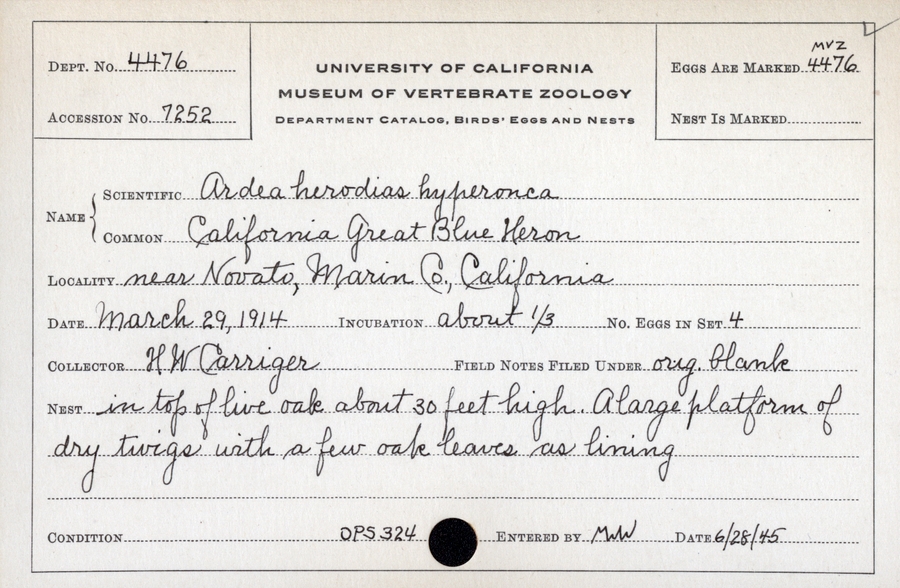 Dept. No. 4476
Accession No. 7252
UNIVERSITY OF CALIFORNIA
MUSEUM OF VERTEBRATE ZOOLOGY
Department Catalog, Birds' Eggs and Nests
MVZ
Eggs Are Marked 4476
Nest Is Marked
Name { Scientific Ardea herodias hyperonca
Common California Great Blue Heron
Locality near Novato, Marin Co., California
Date March 29, 1914 Incubation about 1/3 No. Eggs in Set 4
Collector H W Carriger Field Notes Filed Under orig. blank
Nest in top of live oak about 30 feet high. A large platform of
dry twigs with a few oak leaves as lining
Condition OPS 324 Entered by MW Date 6/28/45